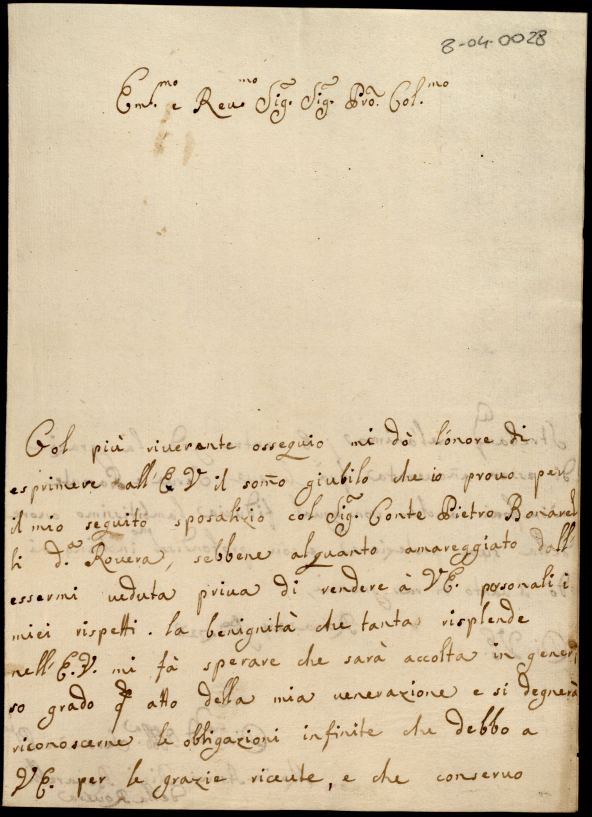 8-04-0028
Em.mo e Reu.mo Sig.r Sig.r Prõ. Col.mo
Col più riuerente ossequio mi dò l'onore di
esprimere all'E V il som̃o giubilo che io prouo per
il mio seguito sposalizio col Sig.r Conte Pietro Bonarel
li d.a Rouera, sebbene alquanto amareggiato dall'
essermi ueduta priua di rendere à V E. personali i
miei rispetti. la benignità che tanta risplende
nell'E.V. mi fà sperare che sarà accolta in genero
so grado q̃ atto della mia uenerazione e si degnerà
riconoscerne le obligazioni infinite che debbo a
V E. per le grazie riceute, e che conseruo